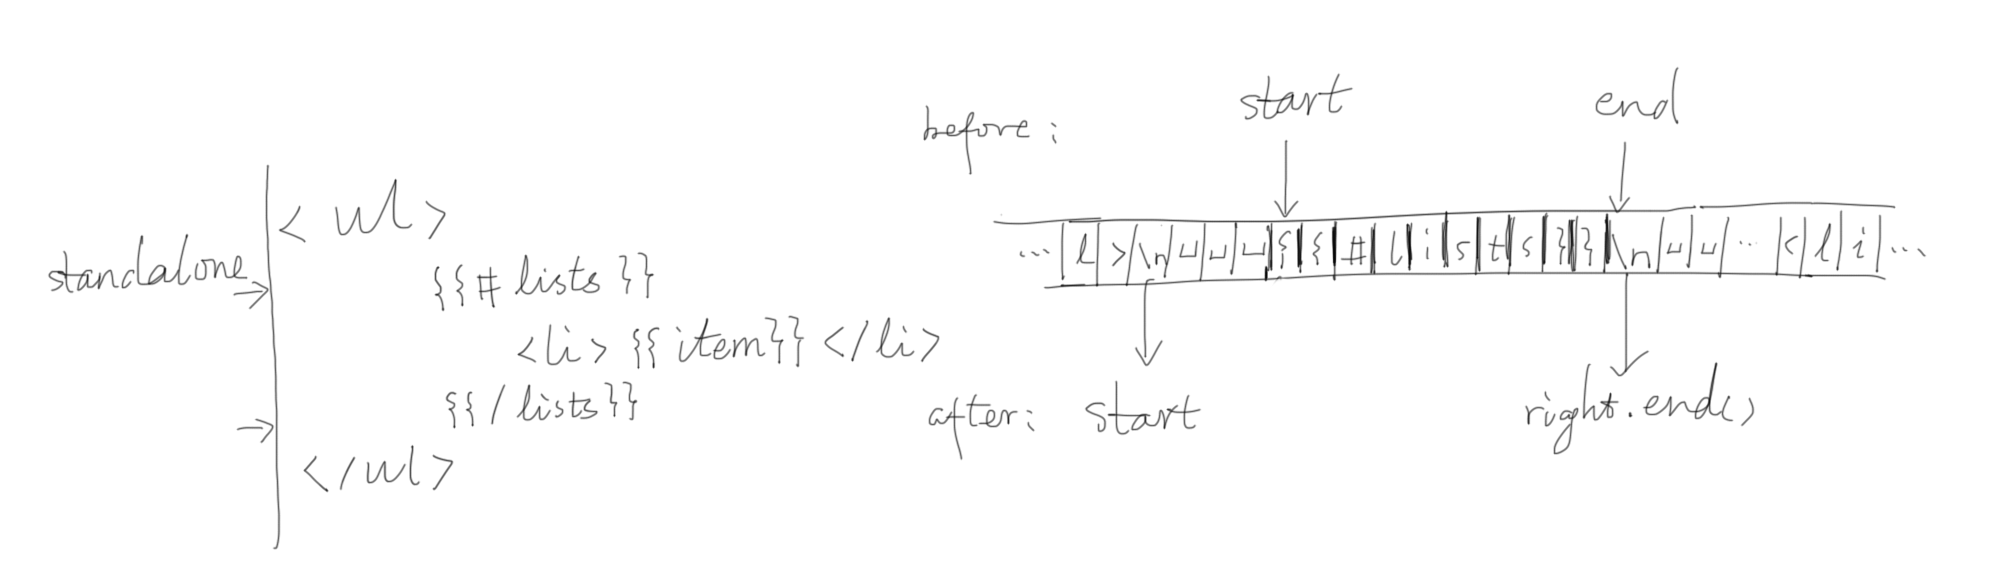 <ul>
standalone
{{# lists}}
<li> {{item}} </li>
{{/lists}}
</ul>
before:
start
end
...|l|>|\n|␣|␣|␣|{|{|#|l|i|s|t|s|}|}|\n|␣|␣|...|<|l|i|...
after: start
right.end()